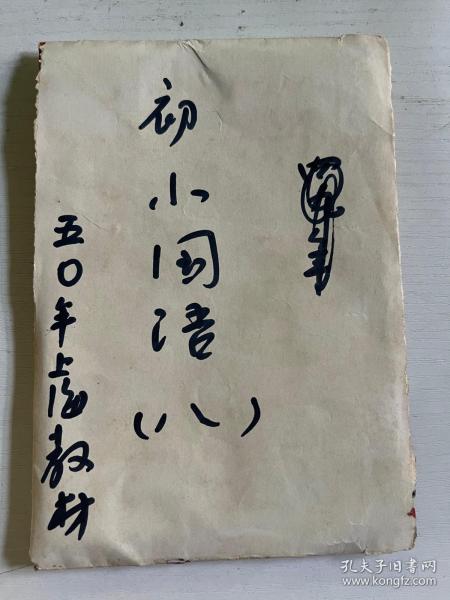 初小国语
(八)
五〇年上海教材
孔夫子旧书网
www.kongfz.com